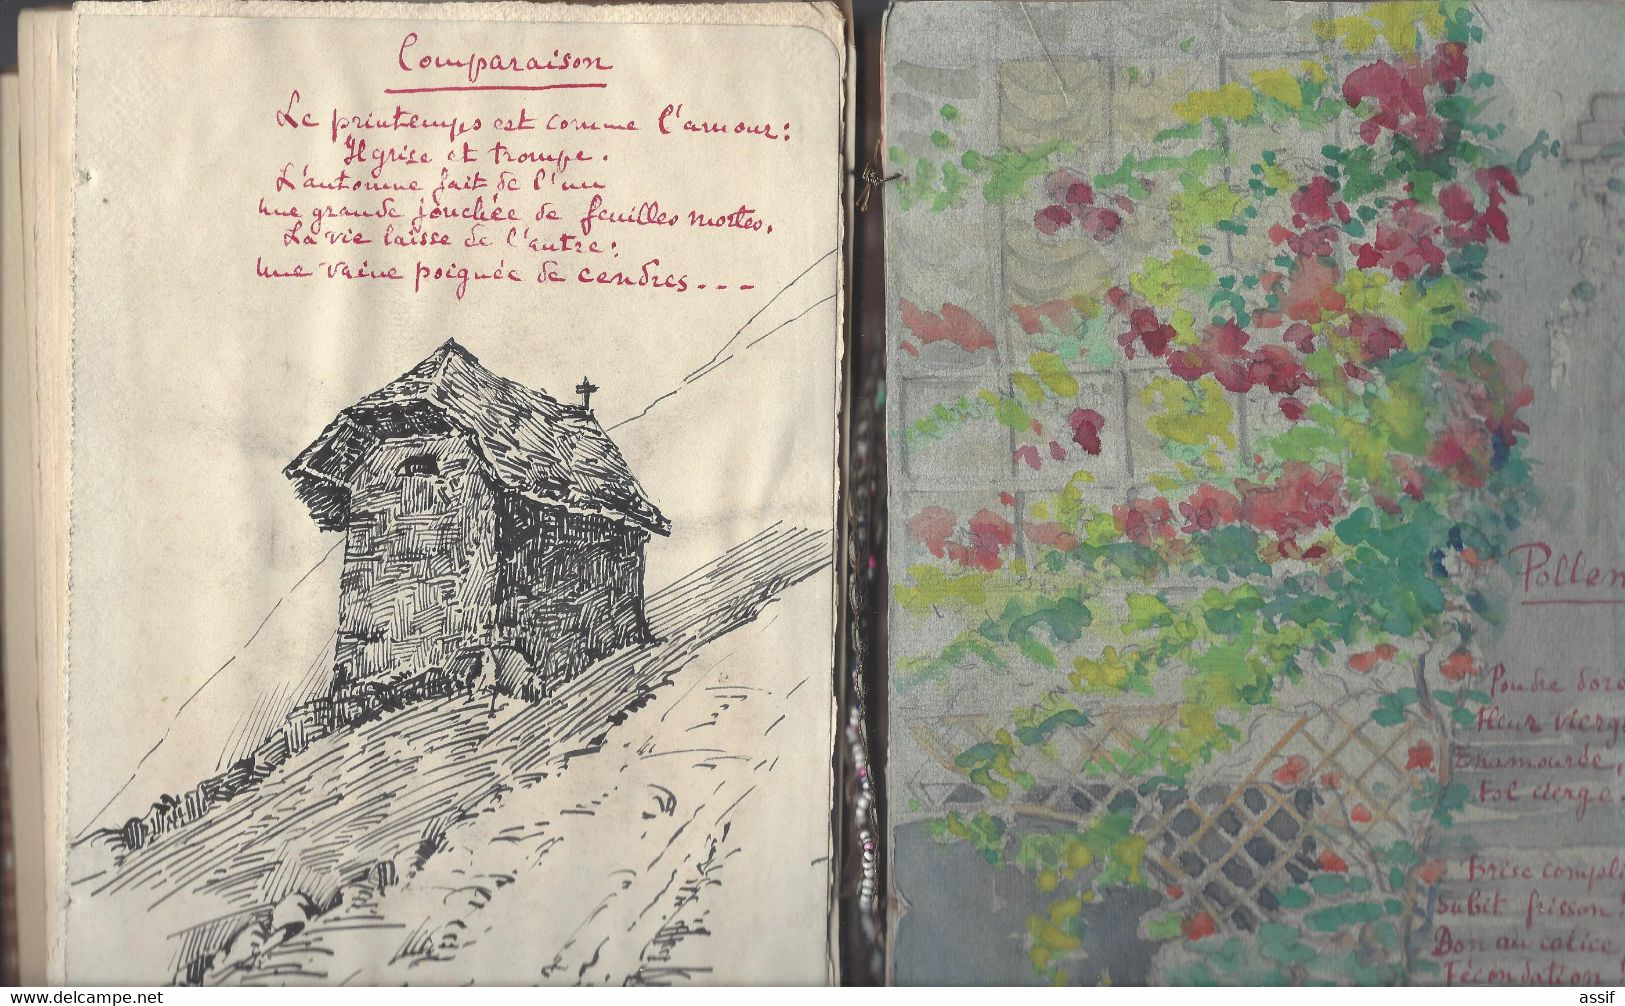 Comparaison
Le printemps est comme l'amour:
Il grise et trompe.
L'automne fait de l'un
une grande jouchée de feuilles mortes.
La vie laisse de l'autre:
une vaine poignée de cendres...
Pollen
Poudre dore
fleur vierge
Enamourée,
tol cierge.
Brise compli
Subit frisson!
Don au calice
Fécondation!
www.delcampe.net
assif